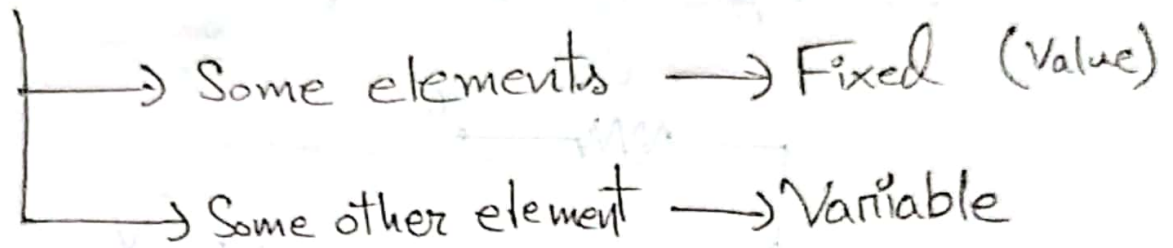 → Some elements → Fixed (Value)
→ Some other element → Variable